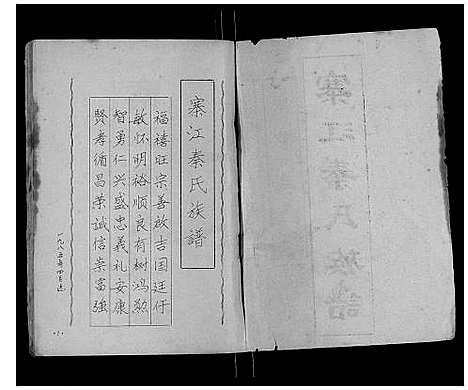 寨江秦氏族譜
寨江秦氏族譜
福禧旺宗善啟吉国廷仔
敏怀明裕顺良有树鸿勲
智勇仁兴盛忠義礼安康
賢孝循昌荣诚信崇富強
一九八五年四月